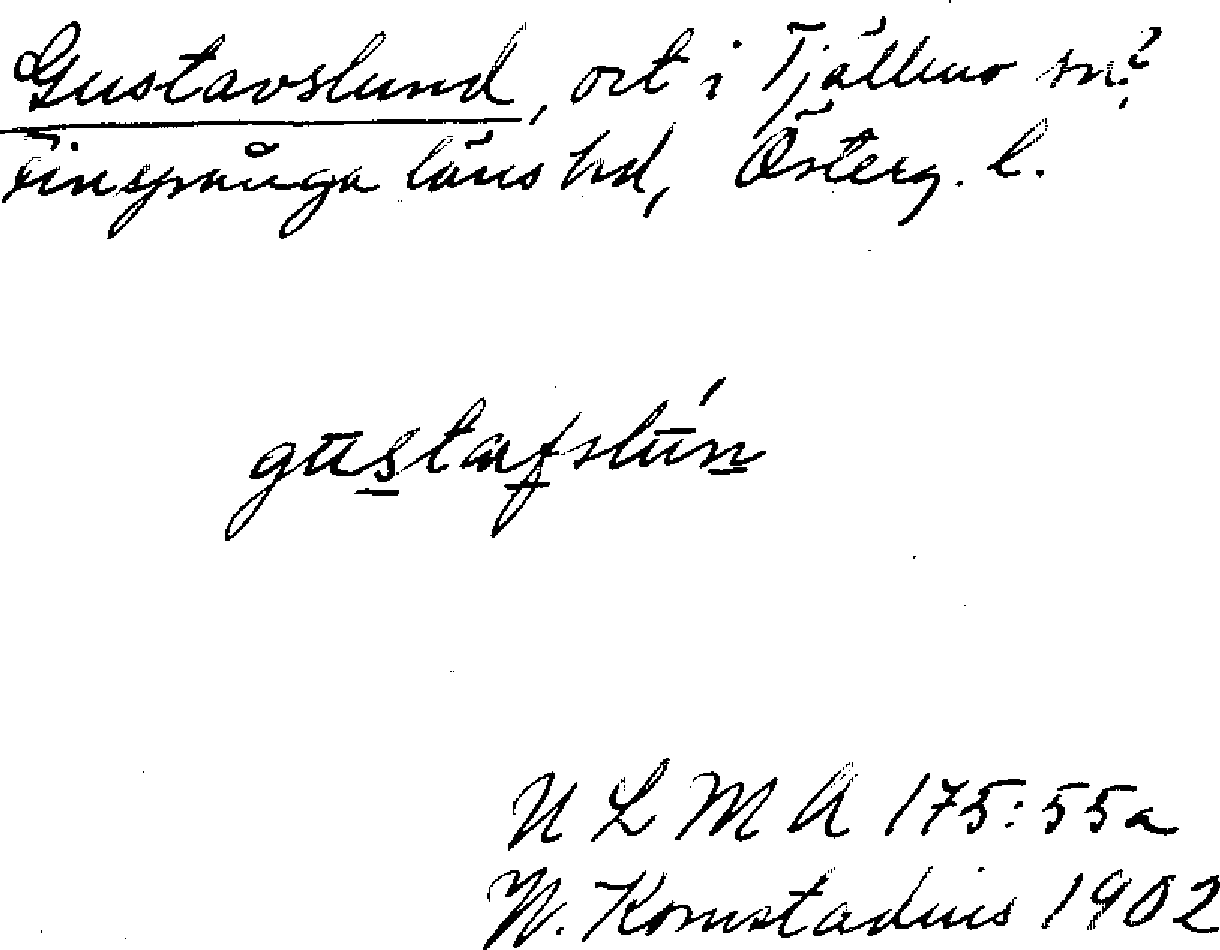 Gustavslund, ort i Tjällmo sn?
Finspånga läns hd, Österg. l.
gustafslún
ULMA 175:55a
W. Komstadius 1902